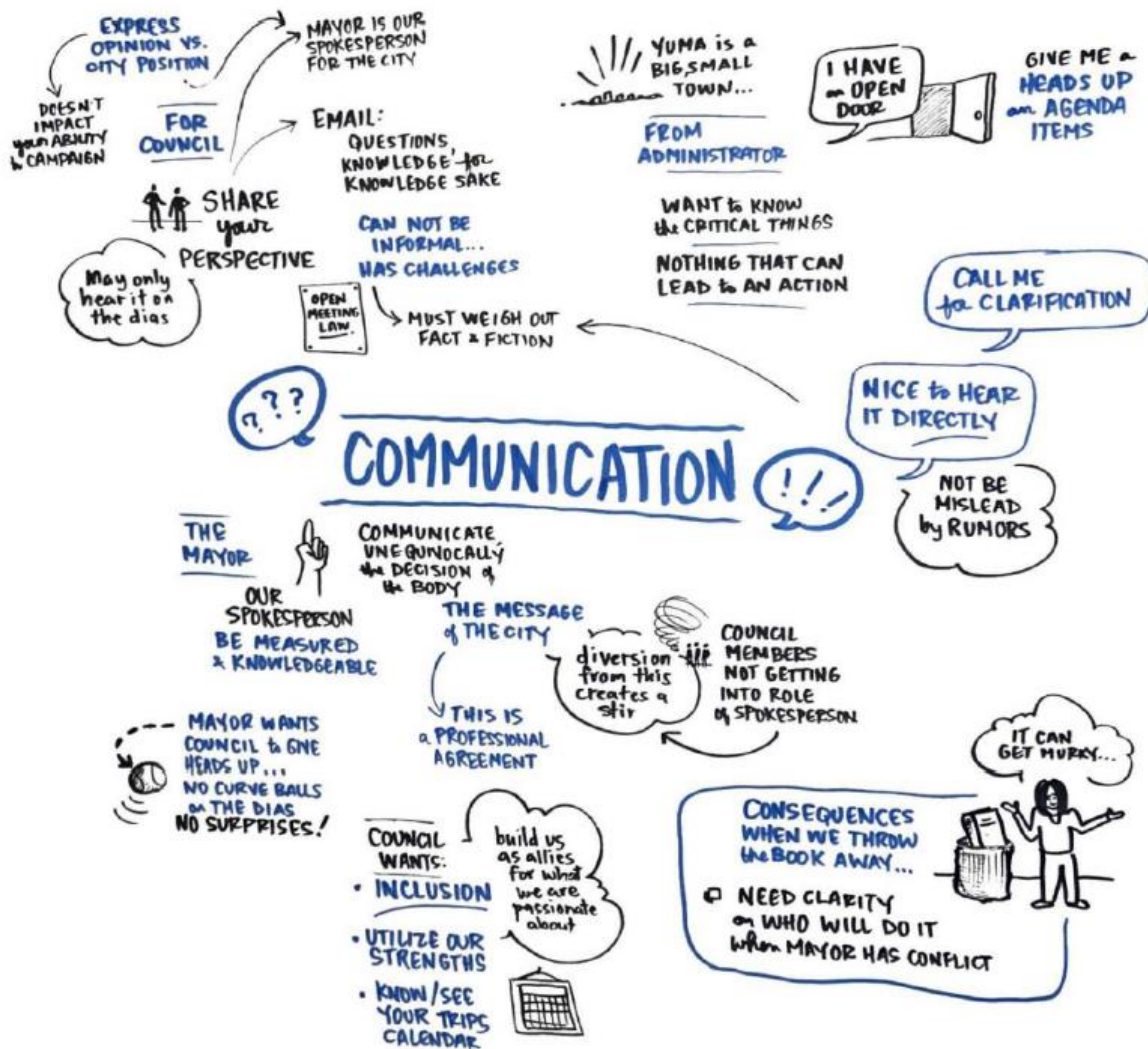 EXPRESS
OPINION VS.
CITY POSITION
DOESN'T
IMPACT
your ABILITY
to CAMPAIGN
FOR
COUNCIL
MAYOR IS OUR
SPOKESPERSON
FOR THE CITY
SHARE
your
PERSPECTIVE
May only
hear it on
the dias
EMAIL:
QUESTIONS,
KNOWLEDGE for
KNOWLEDGE SAKE
CAN NOT BE
INFORMAL...
HAS CHALLENGES
OPEN
MEETING
LAW.
MUST WEIGH OUT
FACT & FICTION
YUMA is a
BIG, SMALL
TOWN...
FROM
ADMINISTRATOR
WANT to KNOW
the CRITICAL THINGS
NOTHING THAT CAN
LEAD to AN ACTION
I HAVE
an OPEN
DOOR
GIVE ME a
HEADS UP
on AGENDA
ITEMS
CALL ME
for CLARIFICATION
NICE to HEAR
IT DIRECTLY
NOT BE
MISLEAD
by RUMORS
???
COMMUNICATION
!!!
THE
MAYOR
OUR
SPOKESPERSON
BE MEASURED
& KNOWLEDGEABLE
COMMUNICATE
UNEQUNOCALLY
the DECISION of
the BODY
THE MESSAGE
of THE CITY
THIS IS
a PROFESSIONAL
AGREEMENT
diversion
from this
creates a
stir
COUNCIL
MEMBERS
NOT GETTING
INTO ROLE
of SPOKESPERSON
MAYOR WANTS
COUNCIL to GIVE
HEADS UP...
NO CURVE BALLS
on THE DIAS
NO SURPRISES!
COUNCIL
WANTS:
• INCLUSION
• UTILIZE OUR
STRENGTHS
• KNOW/SEE
YOUR TRIPS
CALENDAR
build us
as allies
for what
we are
passionate
about
IT CAN
GET MURKY...
CONSEQUENCES
WHEN WE THROW
the BOOK AWAY...
NEED CLARITY
on WHO WILL DO IT
when MAYOR HAS CONFLICT